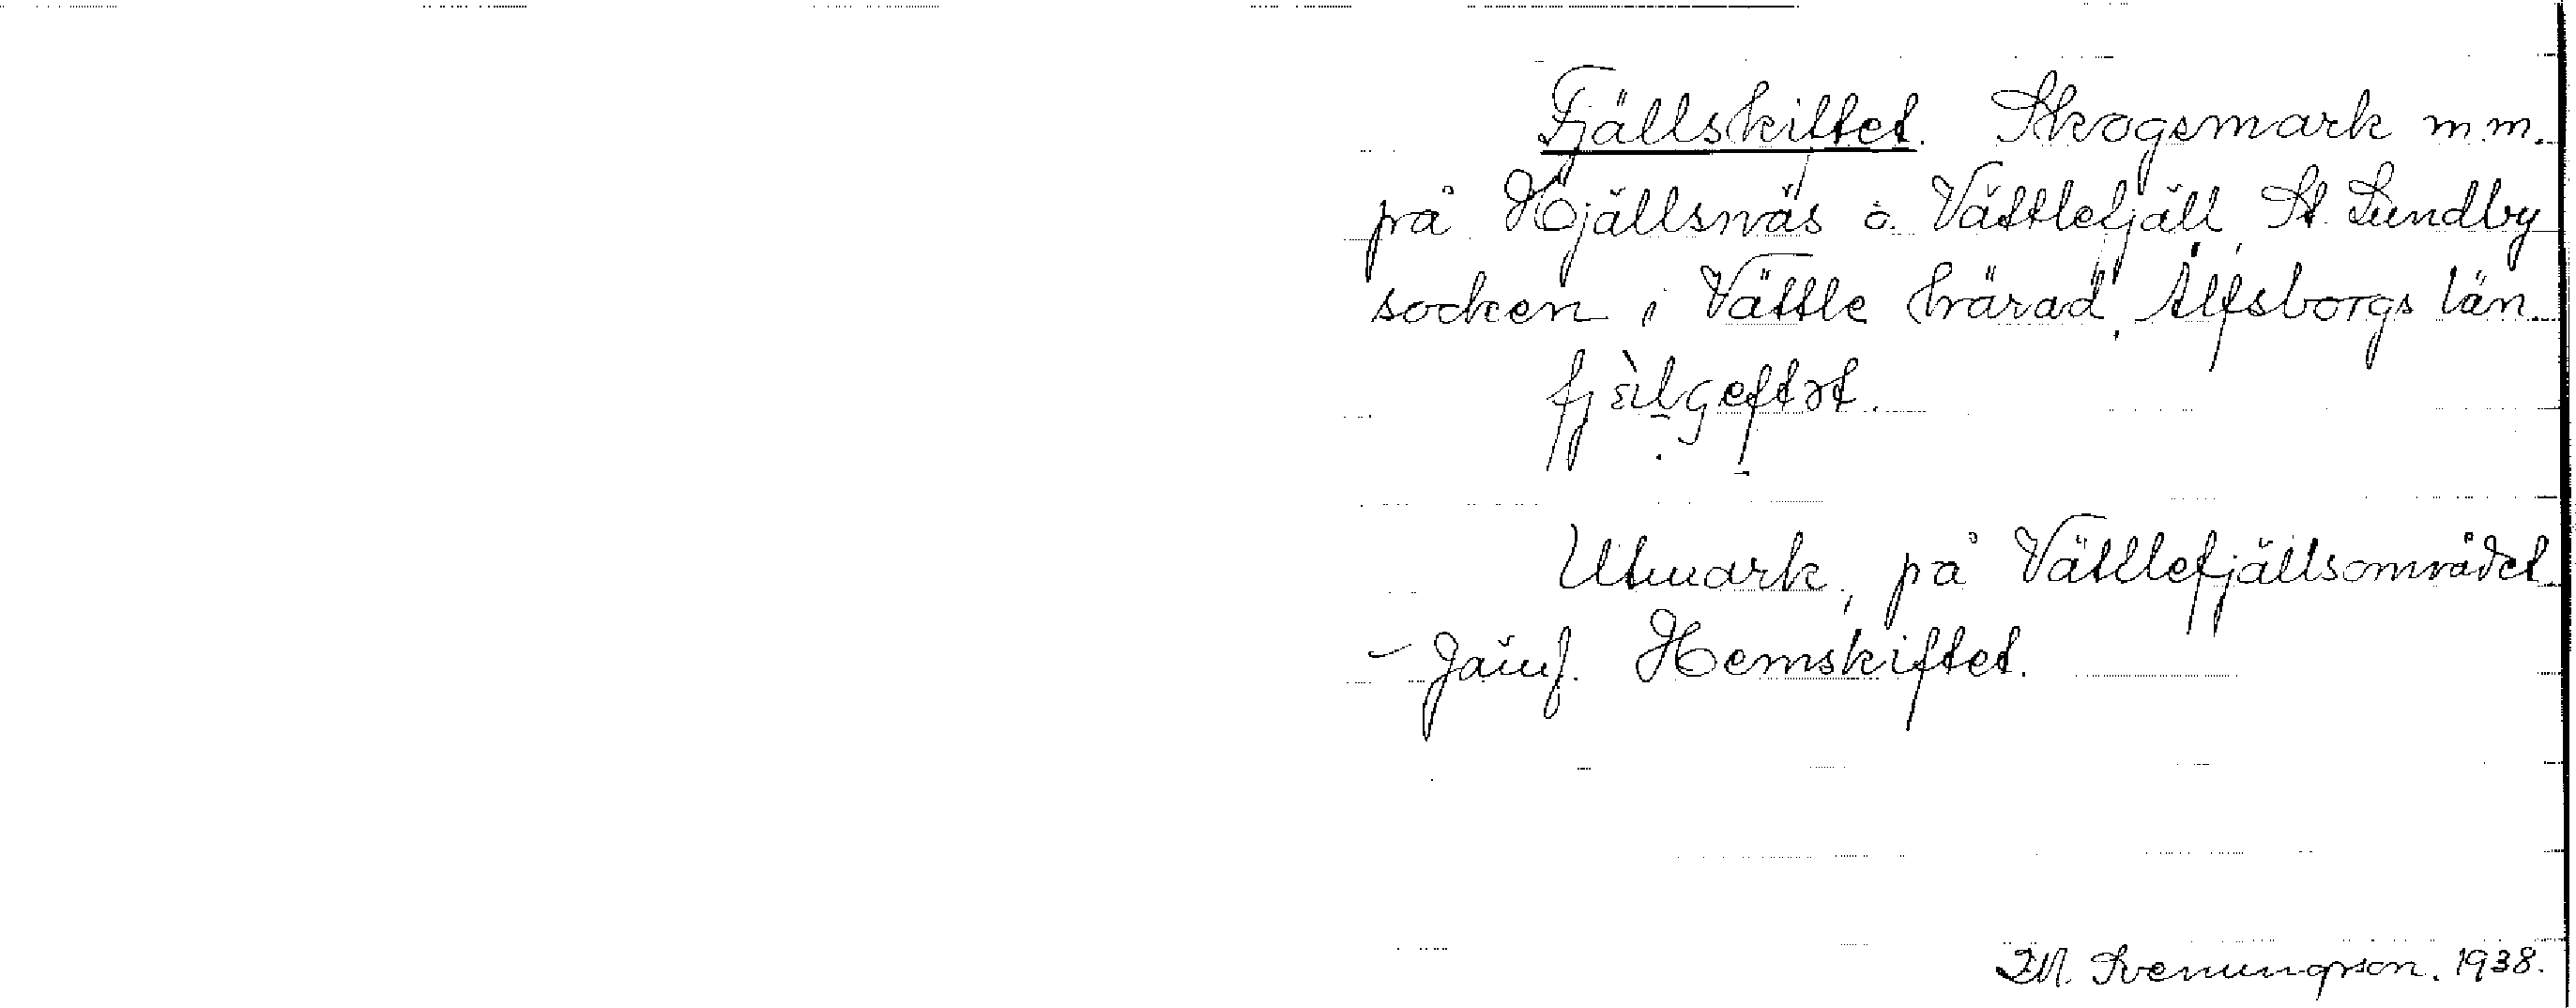 Fjällskiftet. Skogsmark m.m.
på Hjällsnäs o. Vättlefjäll, St. Lundby
socken i Vättle härad, Älfsborgs län.
Utmark, på Vättlefjällsområdet.
- Jämf. Hemskiftet.
Svenungsson. 1938.